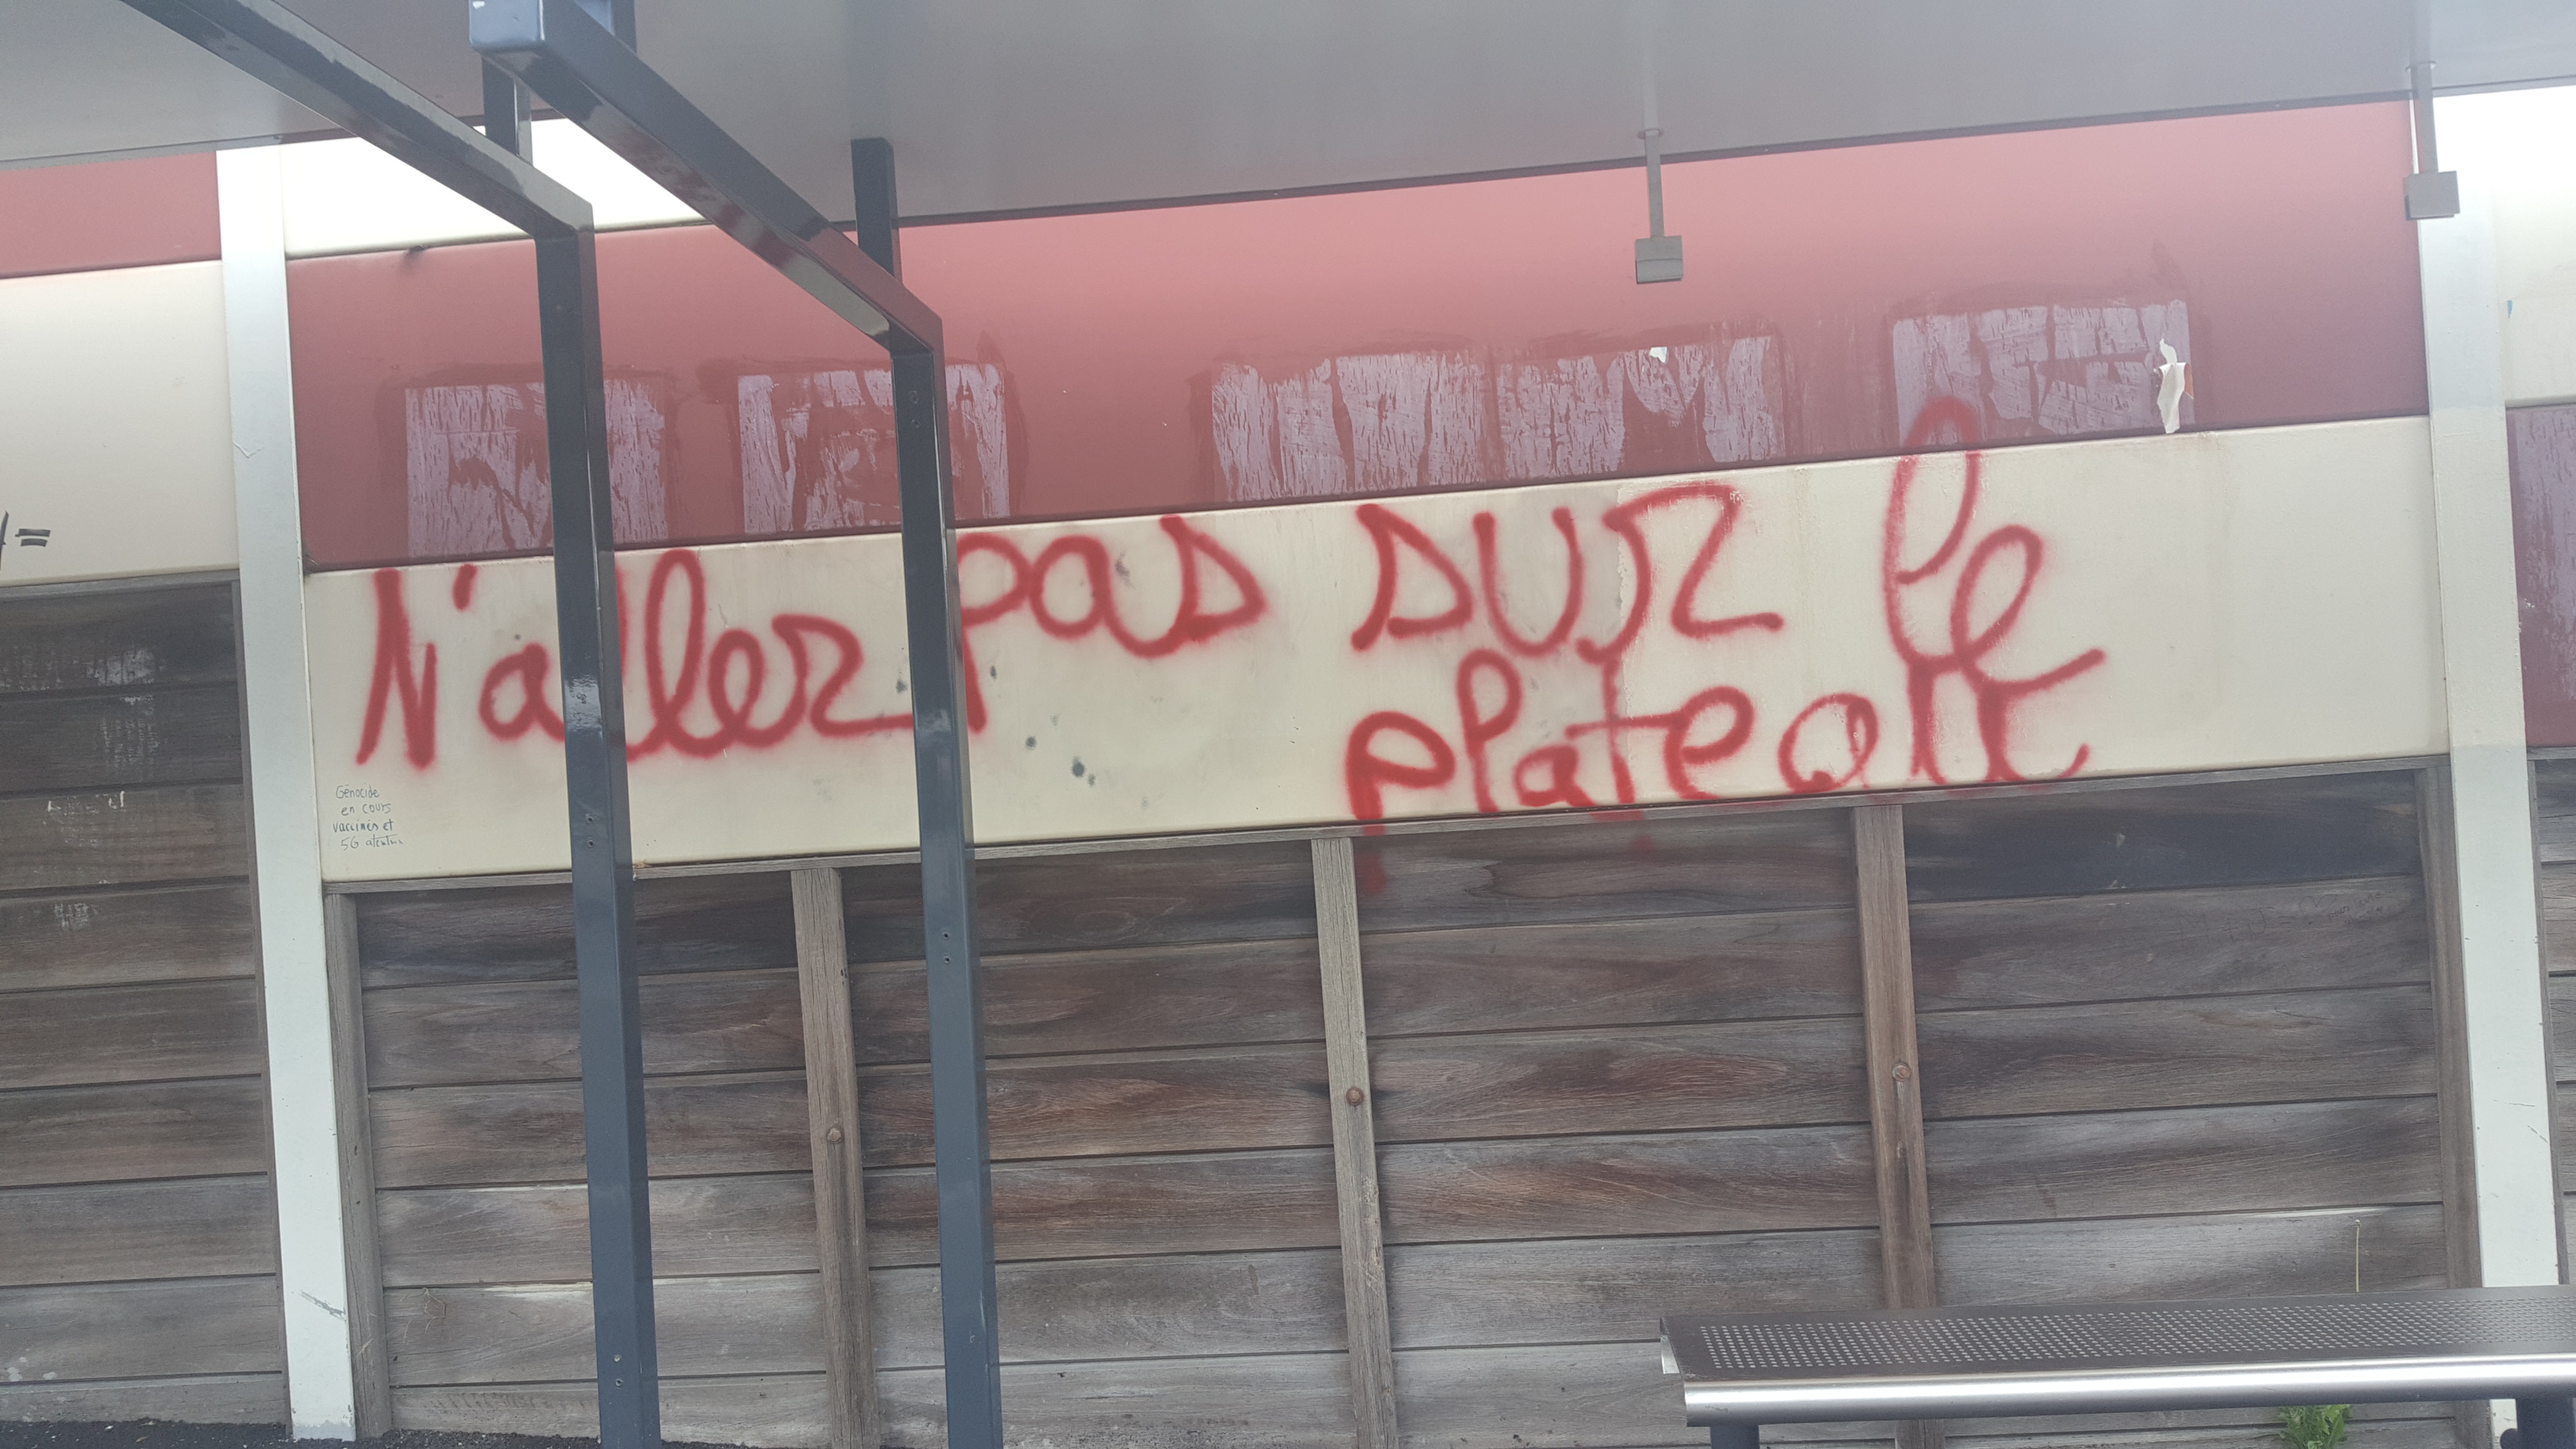 N'aller pas sur le
plateau
Génocide
en cours
vaccinés et
5G
=